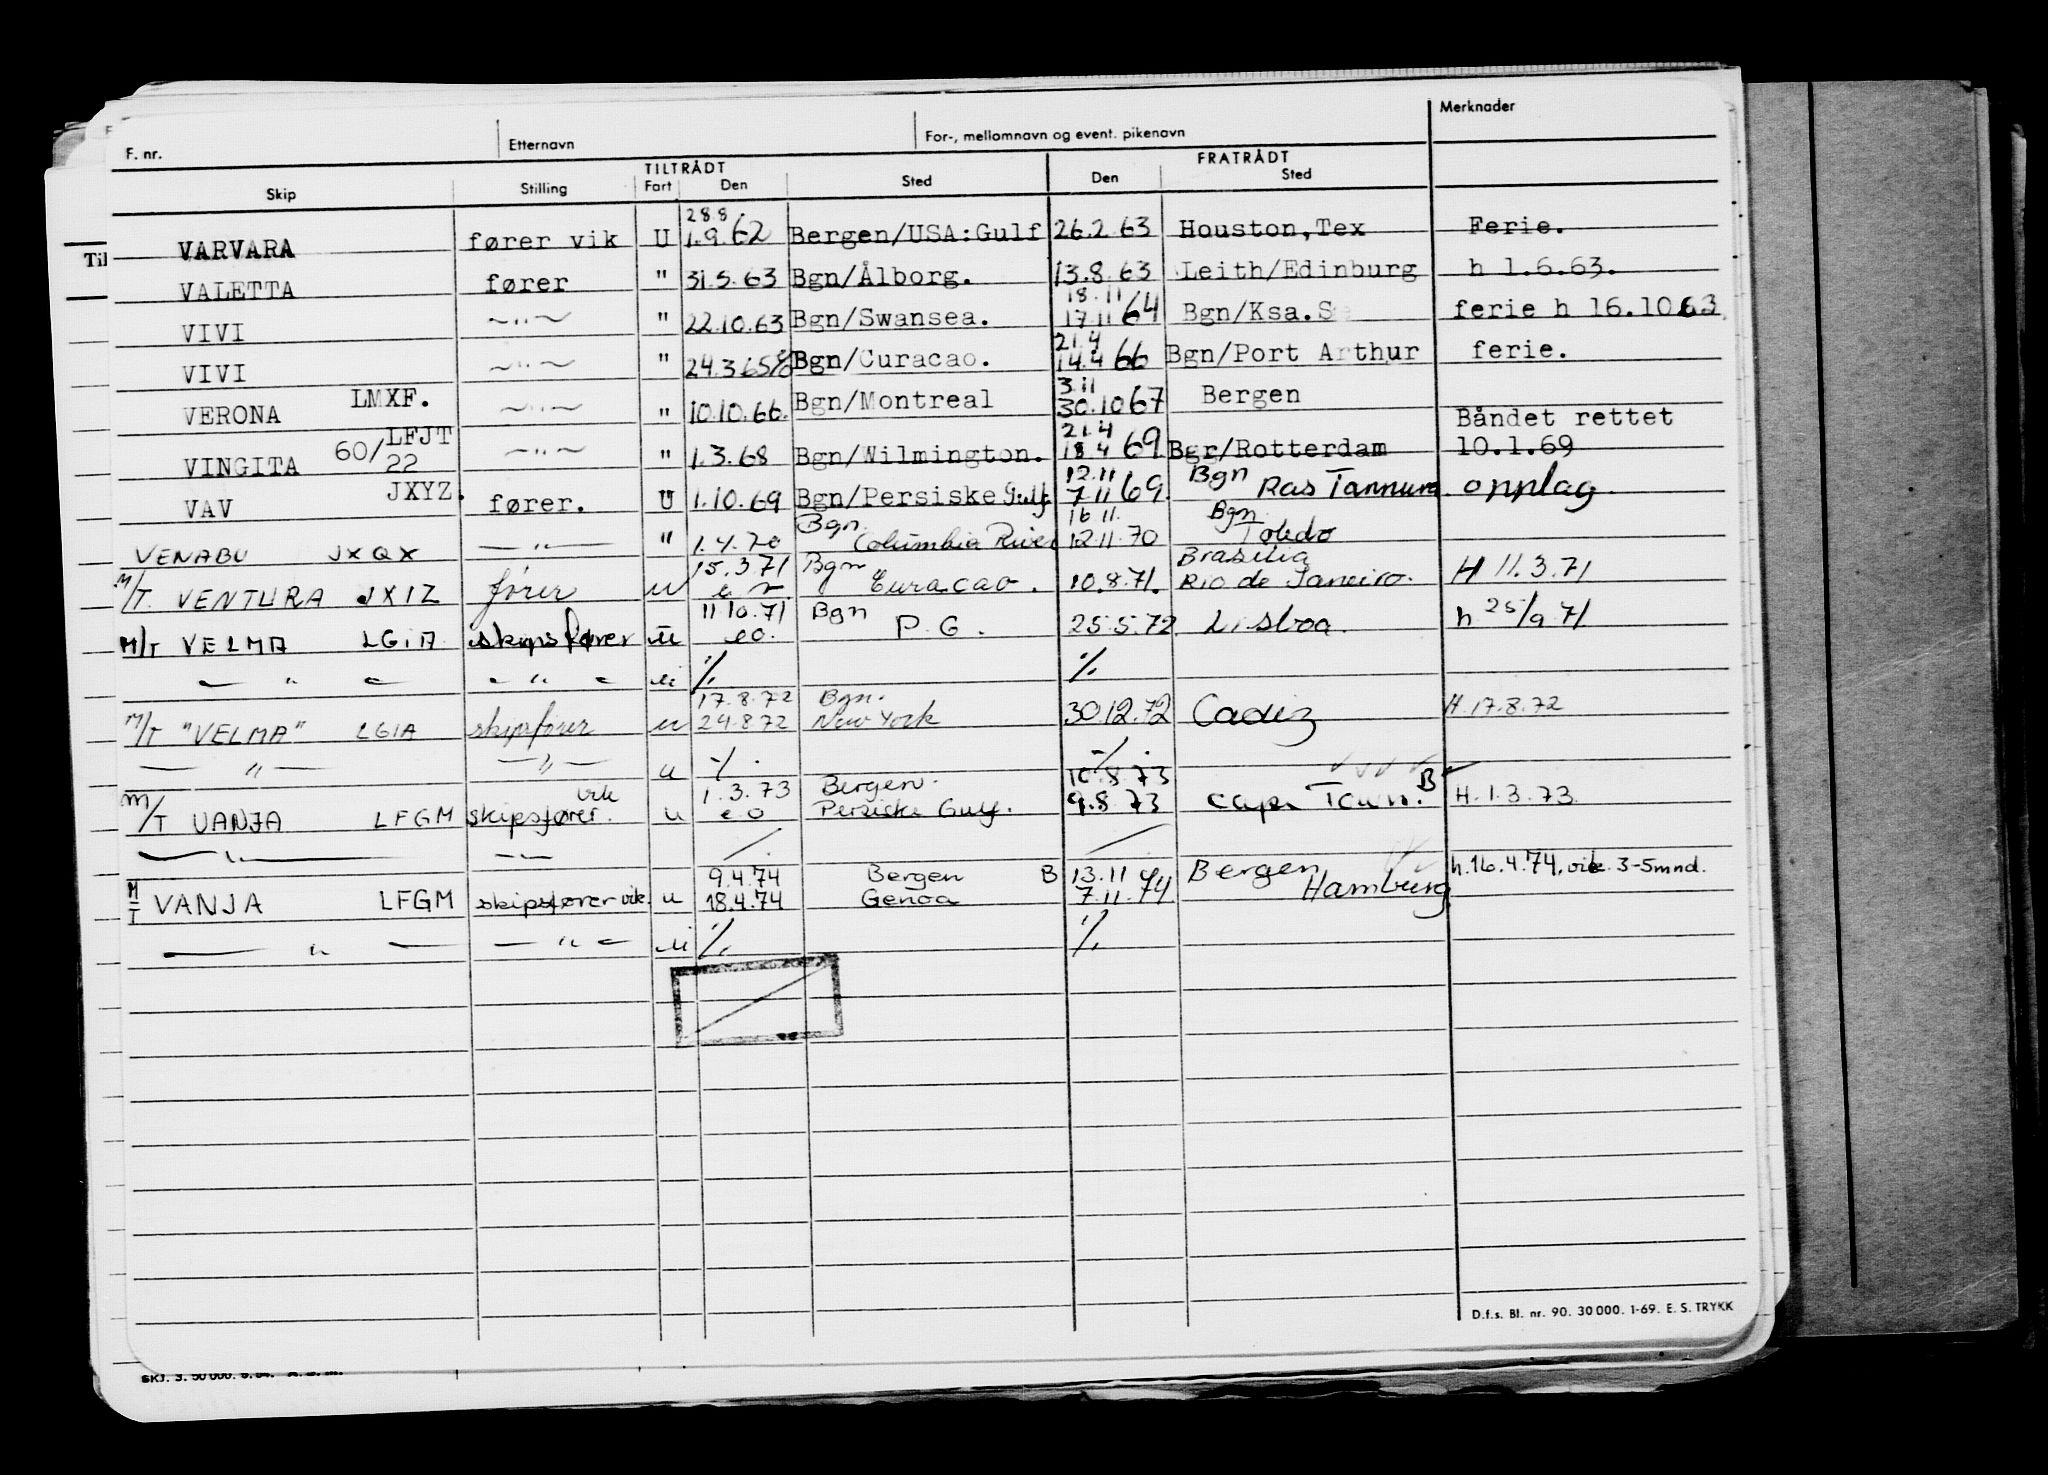 Merknader
F. nr. Etternavn For-, mellomnavn og event. pikenavn
TILTRÅDT FRATRÅDT
Skip Stilling Fart Den Sted Den Sted
Til
28.8
VARVARA fører vik U 1.9.62 Bergen/USA:Gulf 26.2.63 Houston,Tex Ferie.
VALETTA fører " 31.5.63 Bgn/Ålborg. 13.8.63 Leith/Edinburg h 1.6.63.
18.11
VIVI —"— " 22.10.63 Bgn/Swansea. 17.11 64 Bgn/Ksa. ferie h 16.10.63
21.4
VIVI —"— " 24.3.65 Bgn/Curacao. 14.4 66 Bgn/Port Arthur ferie.
3.11
VERONA LMXF. —"— " 10.10.66. Bgn/Montreal 30.10 67 Bergen
LFJT 21.4 Båndet rettet
VINGITA 60/22 —"— " 1.3.68 Bgn/Wilmington. 18.4 69 Bgr/Rotterdam 10.1.69
12.11 Bgn
VAV JXYZ. fører. U 1.10.69 Bgn/Persiske Gulf 7.11 69. Ras Tannura. opplag.
Bgn. 16.11. Bgn.
VENABU JXQX —"— " 1.4.70 Columbia River 12.11.70 Toledo
15.3.71 Bgn Brasilia
M/T. VENTURA JXIZ fører u Curacao. 10.8.71. Rio de Janeiro. H 11.3.71
11.10.71 Bgn
M/T VELMA LGIA skipsfører u eo. P.G. 25.5.72 Lisboa. h 25/9.71
— " — — " — u ./. ./.
17.8.72 Bgn.
M/T "VELMA" LGIA skipsfører u 24.8.72 New York 30.12.72 Cadiz H.17.8.72
— " — — " — u ./. ./.
vik 1.3.73 Bergen. 10.8.73 B
M/T VANJA LFGM skipsfører. u eo Persiske Gulf. 9.8.73 Cape Town. H.1.3.73.
— " — — " — ./. ./.
9.4.74 Bergen B 13.11.74 Bergen h.16.4.74, vik. 3-5mnd.
M/T VANJA LFGM skipsfører vik. u 18.4.74 Genoa 7.11.74 Hamburg
— " — — " — u ./. ./.
D.f.s. Bl. nr. 90. 30 000. 1-69. E. S. TRYKK